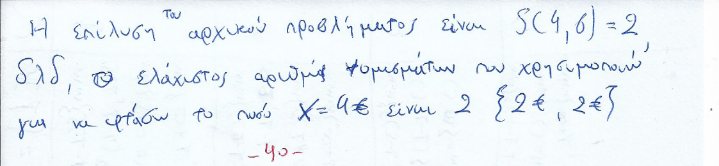 Η επίλυση του αρχικού προβλήματος είναι S(4,6)=2,
δλδ, ο ελάχιστος αριθμός νομισμάτων που χρησιμοποιώ
για να φτάσω το ποσό X=4€ είναι 2 {2€, 2€}
-40-